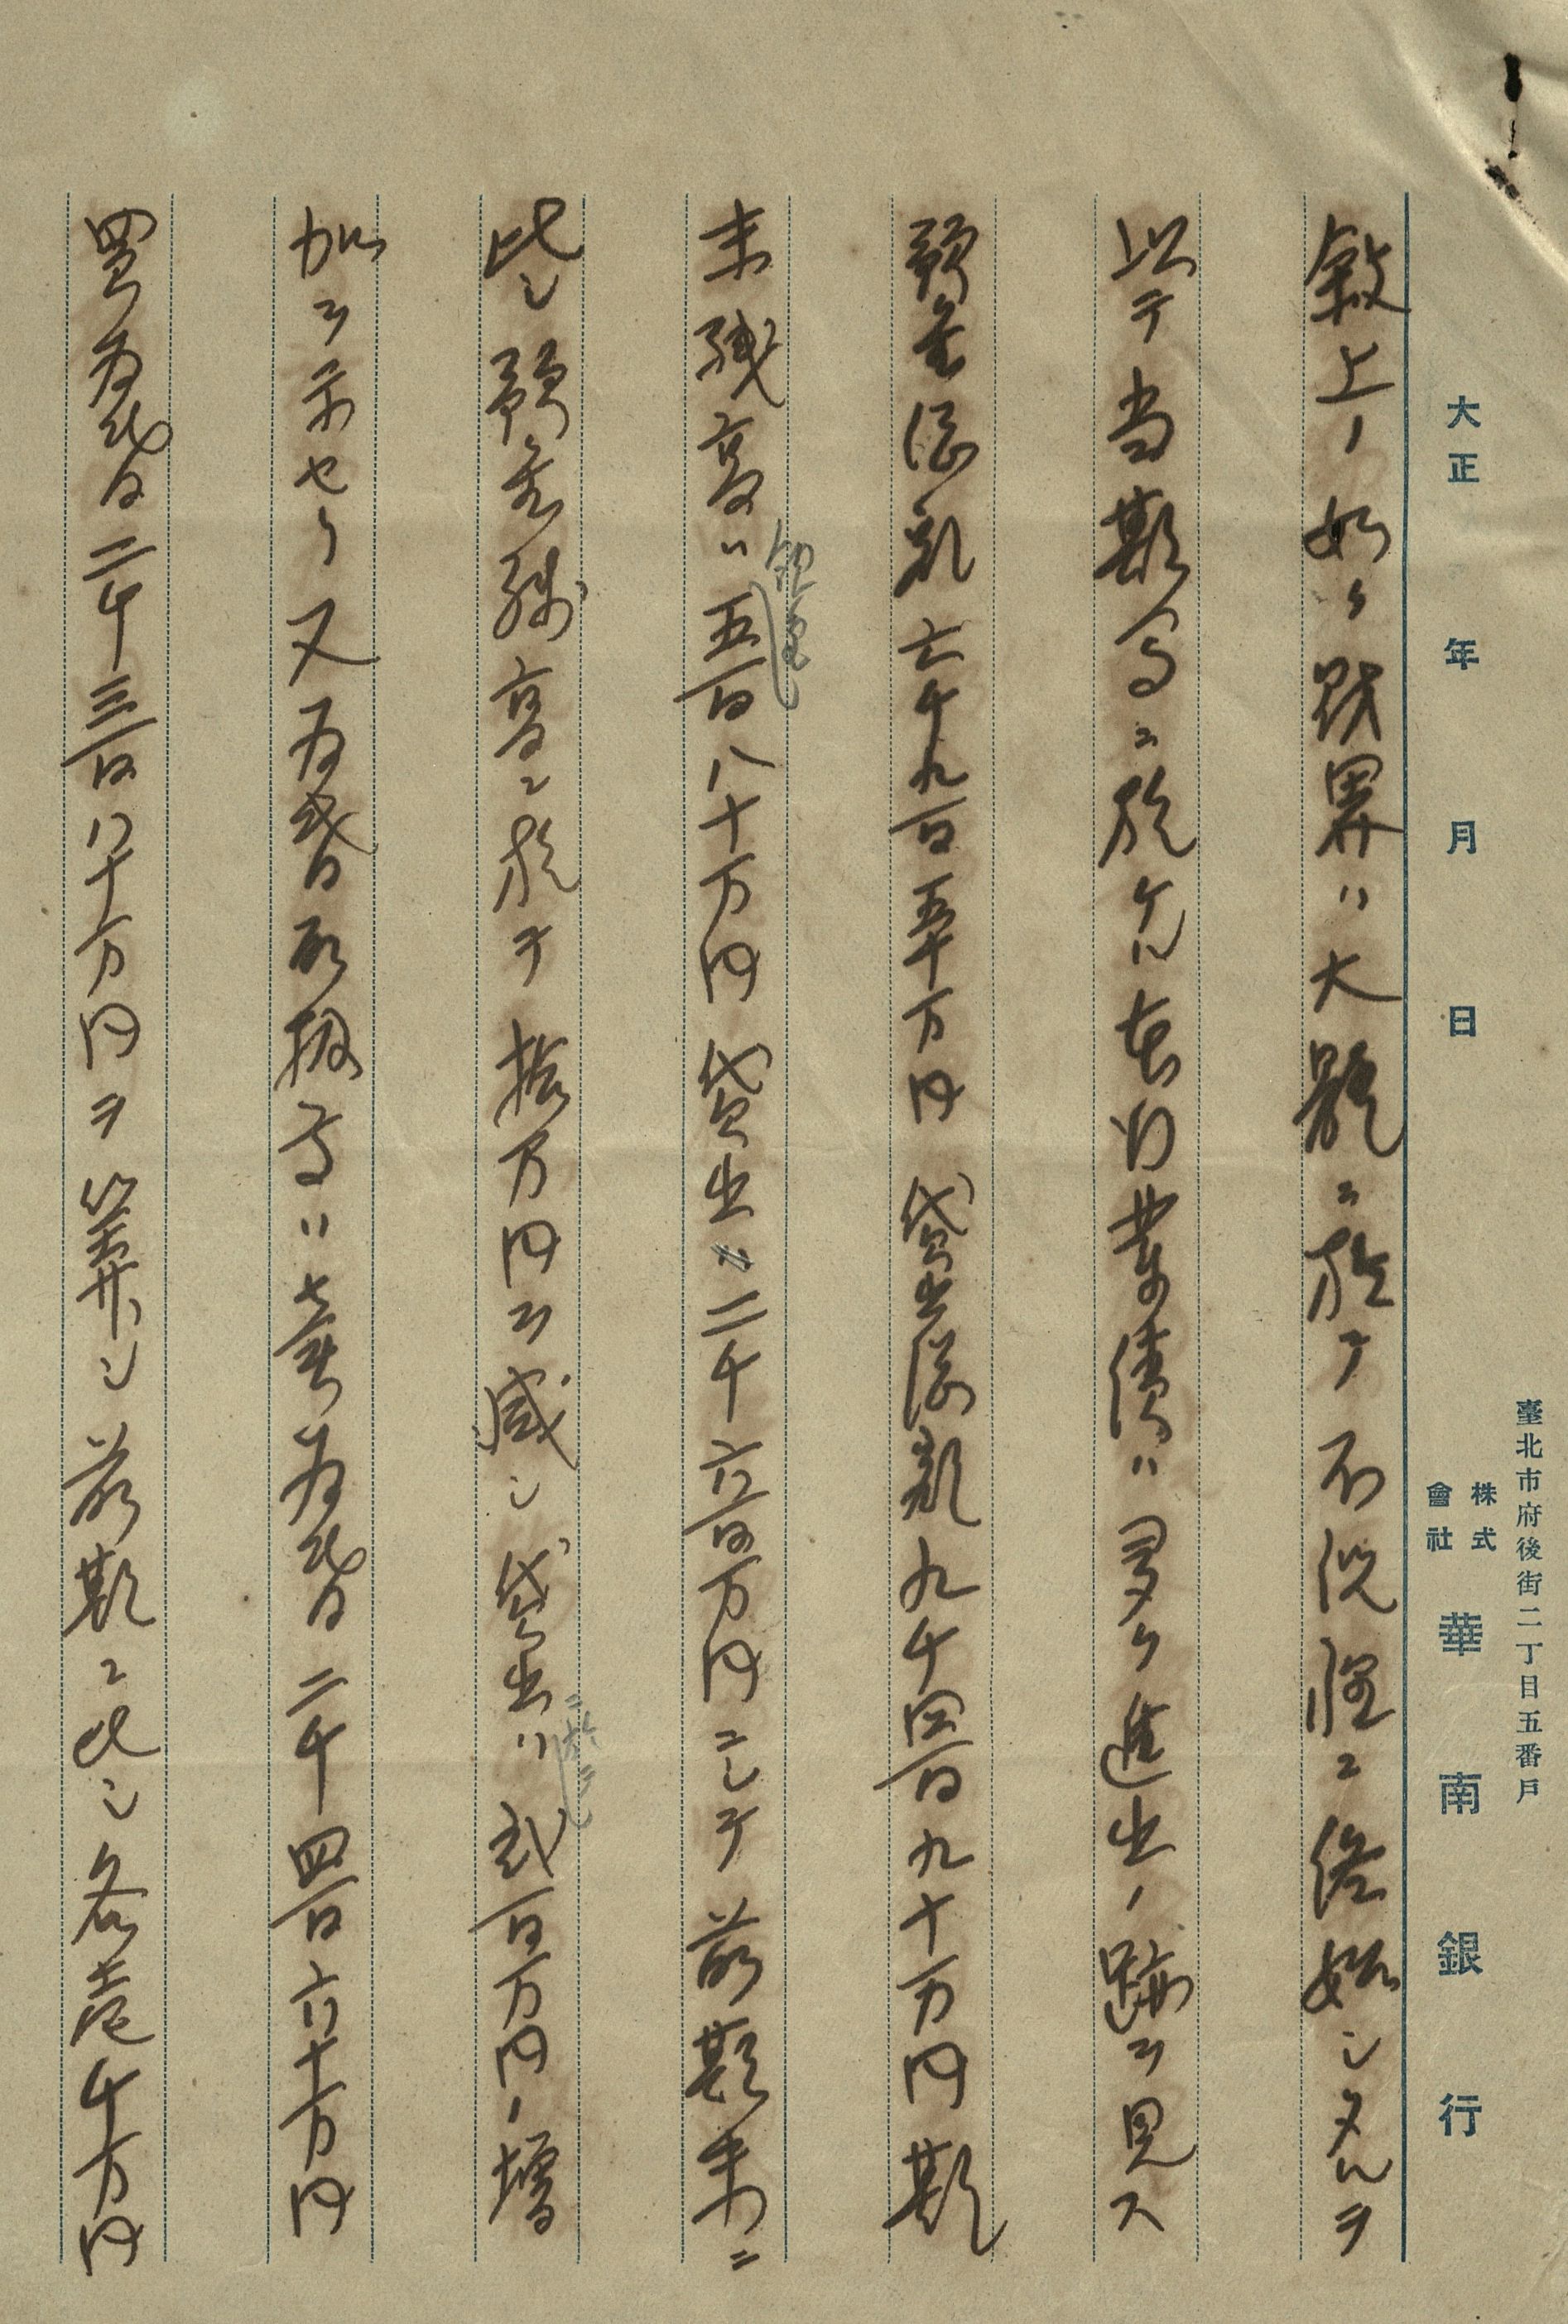 臺北市府後街二丁目五番戶
大正 年 月 日 株式會社 華南銀行
敍上ノ如ク財界ハ大體ニ於テ不況裡ニ終始シタルヲ
以テ当期間ニ於ケル本行業績ハ多ク進出ノ跡ヲ見ス
預金総額六千九百五十万円貸出総額九千四百九十万円期
末残高ハ預金五百八十万円貸出二千六百万円ニシテ前期末ニ
比シ預金残高ニ於テ拾万円ヲ減シ貸出ニ於テハ弐百万円ノ増
加ヲ示セリ又為替取扱高ハ売為替二千四百六十万円
買為替二千三百八十万円ヲ算シ前期ニ比シ各壱千万円